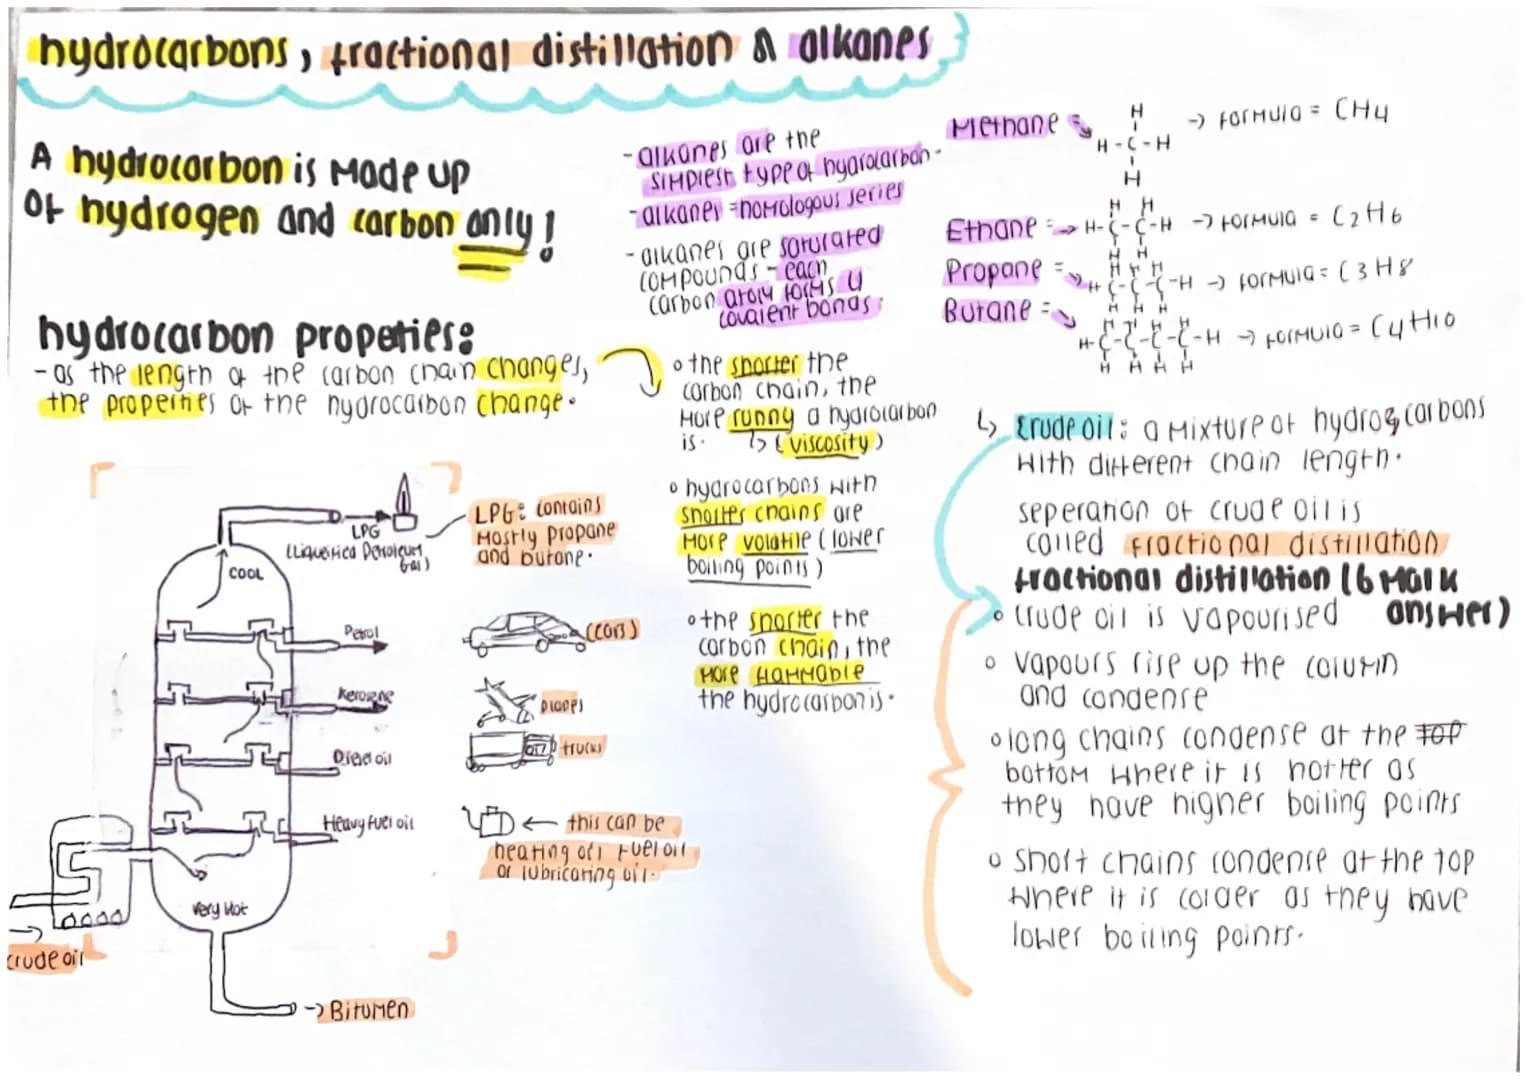 hydrocarbons, fractional distillation & alkanes
A hydrocarbon is made up
of hydrogen and carbon only!
hydrocarbon properties:
- as the length of the carbon chain changes,
the properties of the hydrocarbon change.
- alkanes are the
simplest type of hydrocarbon.
- alkanes = homologous series
- alkanes are saturated
compounds - each
carbon atom forms 4
covalent bonds.
Methane =
H
H - C - H
H
→ formula = CH4
Ethane =
H H
H - C - C - H
H H
→ formula = C2H6
Propane =
H H H
H - C - C - C - H
H H H
→ formula = C3H8
Butane =
H H H H
H - C - C - C - C - H
H H H H
→ formula = C4H10
○ the shorter the
carbon chain, the
more runny a hydrocarbon
is. ↳ (viscosity)
○ hydrocarbons with
shorter chains are
more volatile (lower
boiling points)
○ the shorter the
carbon chain, the
more flammable
the hydrocarbon is.
↳ crude oil: a mixture of hydro & carbons
with different chain length.
seperation of crude oil is
called fractional distillation
fractional distillation (6 mark
answer)
○ crude oil is vapourised
○ vapours rise up the column
and condense
○ long chains condense at the top
bottom where it is hotter as
they have higher boiling points
○ short chains condense at the top
where it is colder as they have
lower boiling points.
LPG
(Liquefied Petroleum
Gas)
LPG: contains
mostly propane
and butane.
COOL
Petrol
(cars)
Kerosene
planes
Diesel oil
trucks
Heavy fuel oil
← this can be
heating oil fuel oil
or lubricating oil.
Very Hot
crude oil
→ Bitumen